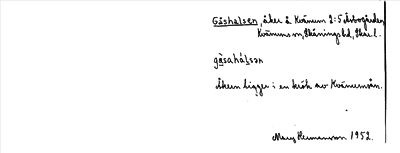 Gåshalsen, åker å Kvänum 2:5 Arbogården
Kvänums sn, Skånings hd, Skar. l.
gå̀sahálsən
Åkern ligger i en krök av Kvänumsån.
Mary Hermansson 1952.